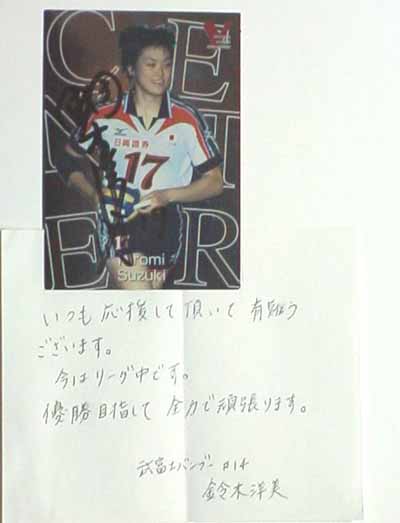 CENTER
日興證券
17
17
Hiromi
Suzuki
いつも応援して頂いて有難う
ございます。
今はリーグ中です。
優勝目指して全力で頑張ります。
武富士バンブー #14
鈴木洋美